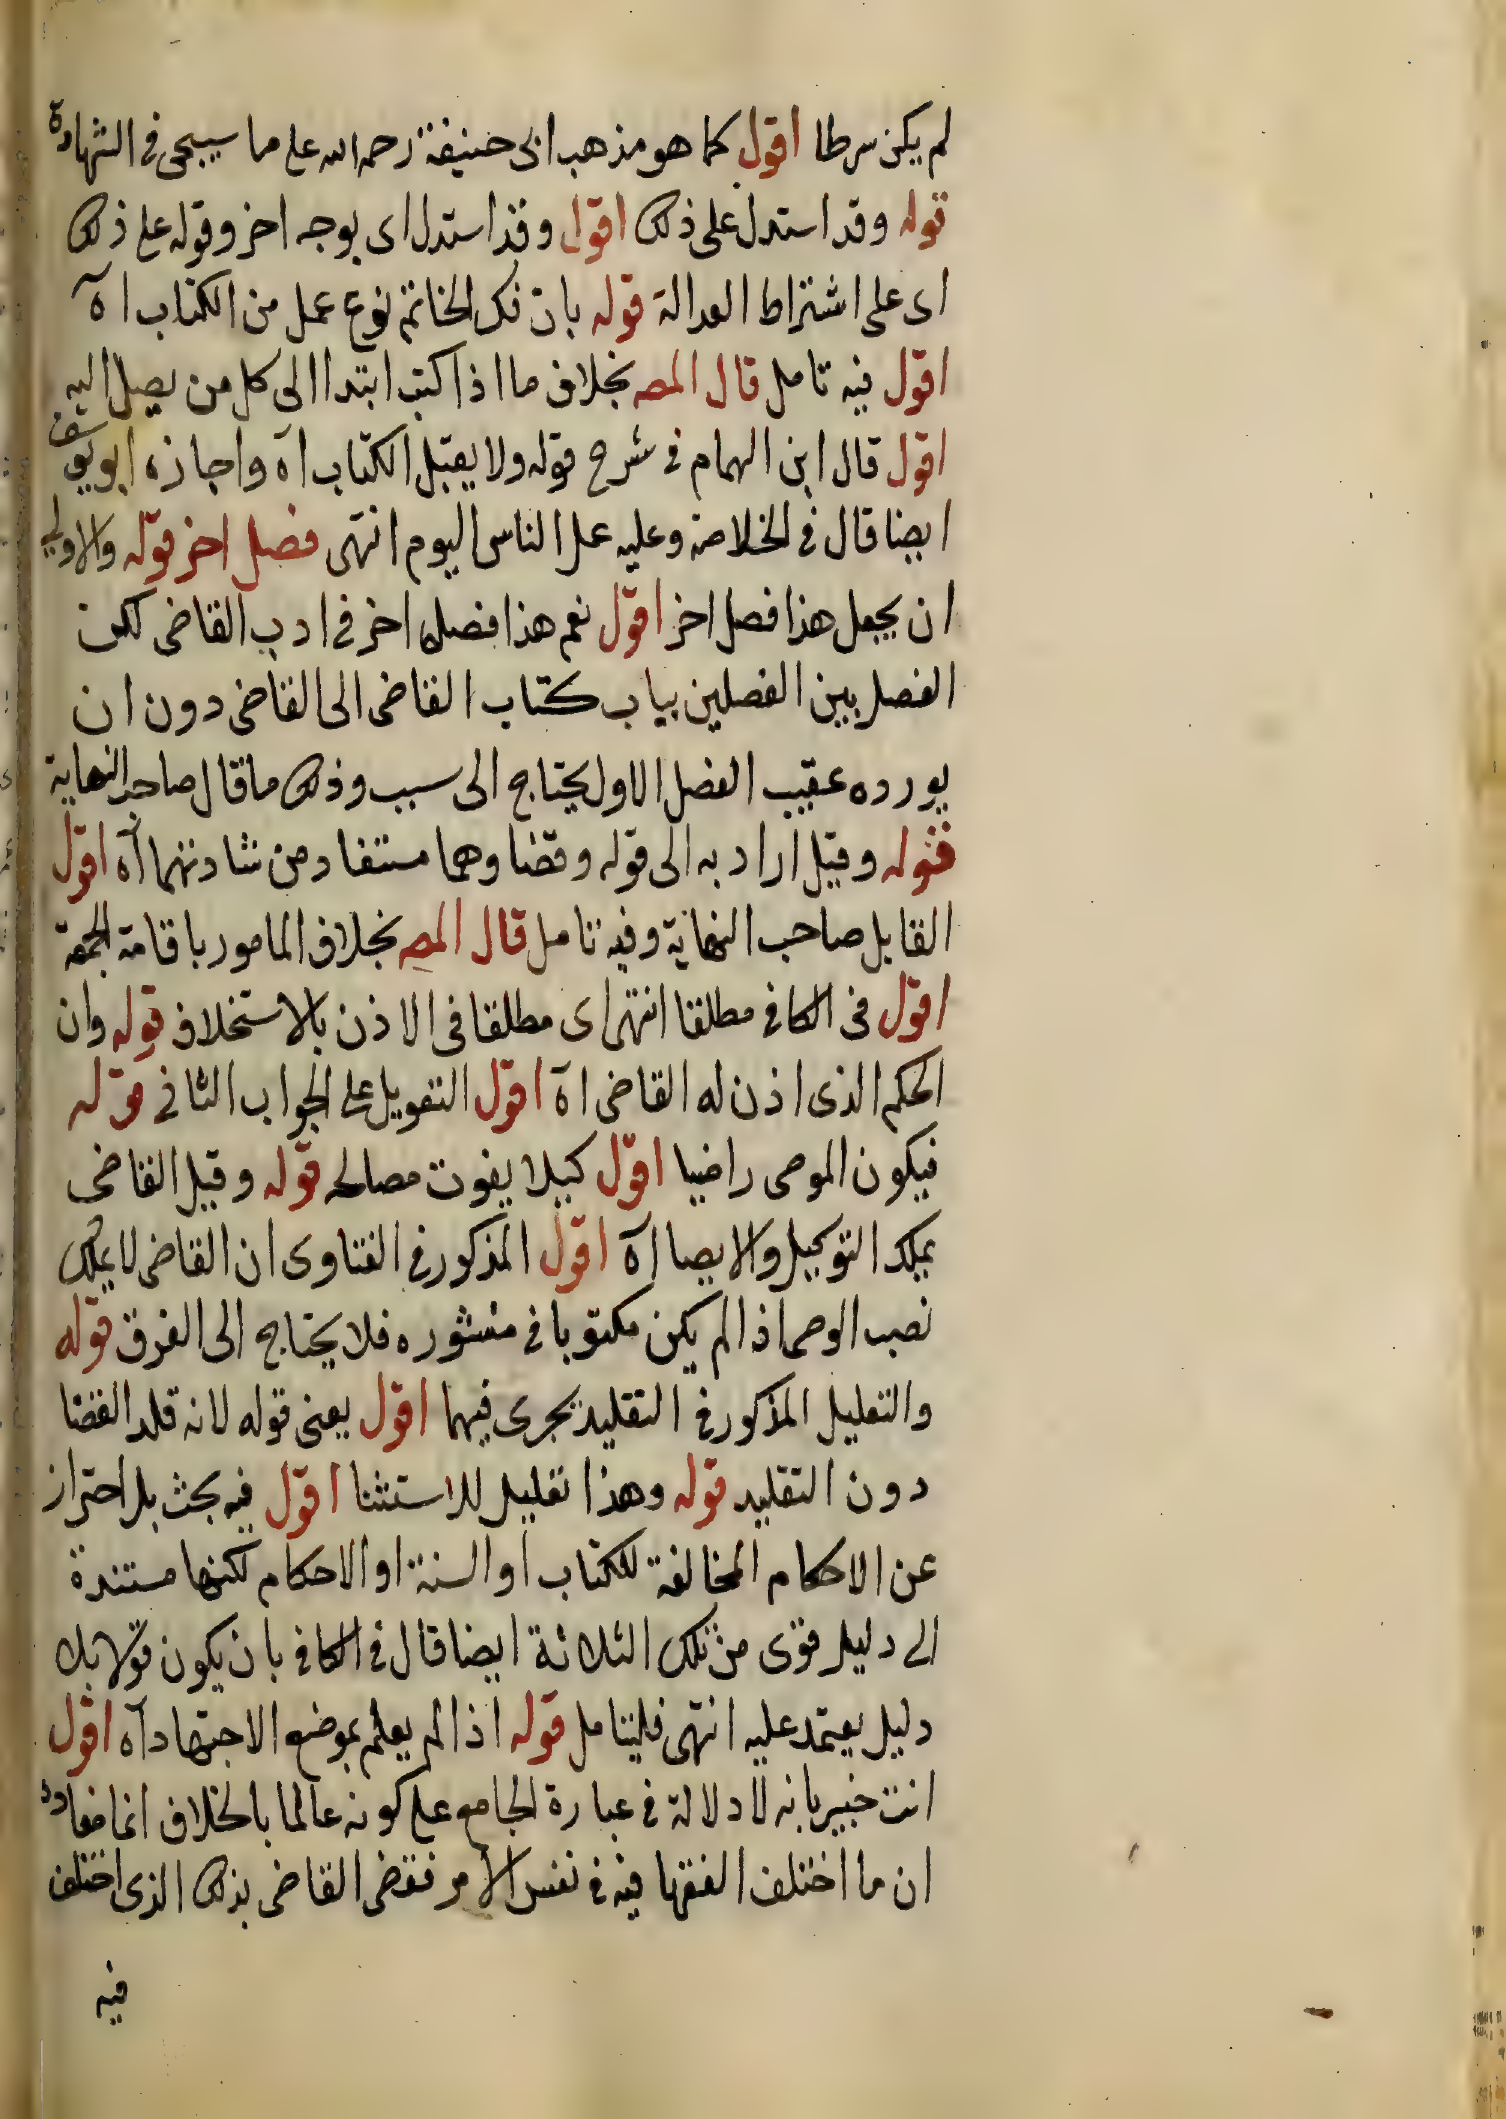 لم يكن سرطا اقول كما هو مذهب ابى حنيفة رحمه الله على ما سيجى فى الشهادة
قوله وقد استدل على ذلك اقول وقد استدل اى بوجه اخر وقوله على ذلك
اى على اشتراط العدالة قوله بان فك الخاتم نوع عمل من الكتاب اه
اقول فيه تامل قال المصـ بخلاف ما اذا كتب ابتدا الى كل من يصل اليه
اقول قال ابن الهمام فى شرح قوله ولا يقبل الكتاب اه واجازه ابو يوسف
ايضا قال فى الخلاصة وعليه عمل الناس اليوم انتهى فصل اخر قوله والاولى
ان يجعل هذا فصل اخر اقول نعم هذا فصل اخر فى ادب القاضى لكن
الفصل بين الفصلين بباب كتاب القاضى الى القاضى دون ان
يورده عقيب الفصل الاول يحتاج الى سبب وذلك ما قال صاحب النهاية
قوله وقيل اراد به الى قوله وقضاوهما مستفاد من شهادتهما اه اقول
القايل صاحب النهاية وفيه تامل قال المصـ بخلاف المامور باقامة الجمعة
اقول فى الكافى مطلقا انتهى اى مطلقا فى الاذن بالاستخلاف قوله وان
الحكم الذى اذن له القاضى اه اقول التعويل على الجواب الثانى قوله
فيكون الموصى راضيا اقول كيلا يفوت مصالحه قوله وقيل القاضى
يملك التوكيل والايصا اه اقول المذكور فى الفتاوى ان القاضى لا يملك
نصب الوصى اذا لم يكن مكتوبا فى منشوره فلا يحتاج الى الفرق قوله
والتعليل المذكور فى التقليد يجرى فيهما اقول يعنى قوله لانه قلد القضا
دون التقليد قوله وهذا تعليل للاستثنا اقول فيه بحث بل احتراز
عن الاحكام المخالفة للكتاب او السنة او الاحكام لكنها مستندة
الى دليل قوى من تلك الثلاثة ايضا قال فى الكافى بان يكون قولا بلا
دليل يعتمد عليه انتهى فليتامل قوله اذا لم يعلم بموضع الاجتهاد اه اقول
انت خبير بانه لا دلالة فى عبارة الجامع على كونه عالما بالخلاف انما مفاده
ان ما اختلف الفقها فيه فى نفس الامر فقضى القاضى بذلك الذى اختلف
فيه